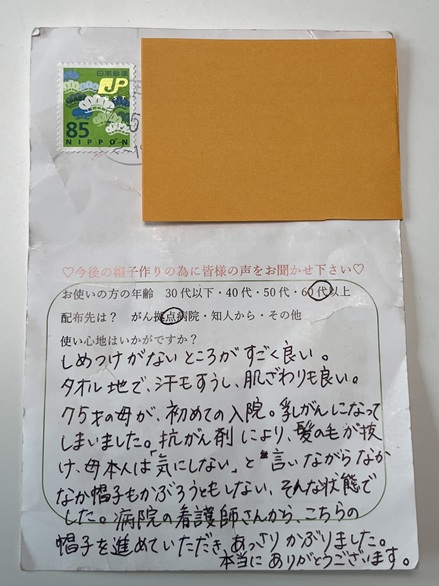 日本郵便
JP
85
NIPPON
♡今後の帽子作りの為に皆様の声をお聞かせ下さい♡
お使いの方の年齢　30代以下・40代・50代・60代以上
配布先は？　がん拠点病院・知人から・その他
使い心地はいかがですか？
しめつけがないところがすごく良い。
タオル地で、汗もすうし、肌ざわりも良い。
75才の母が、初めての入院。乳がんになって
しまいました。抗がん剤により、髪の毛が抜
け、母本人は「気にしない」と言いながらなか
なか帽子もかぶろうともしない、そんな状態で
した。病院の看護師さんから、こちらの
帽子を進めていただき、あっさりかぶりました。
本当にありがとうございます。